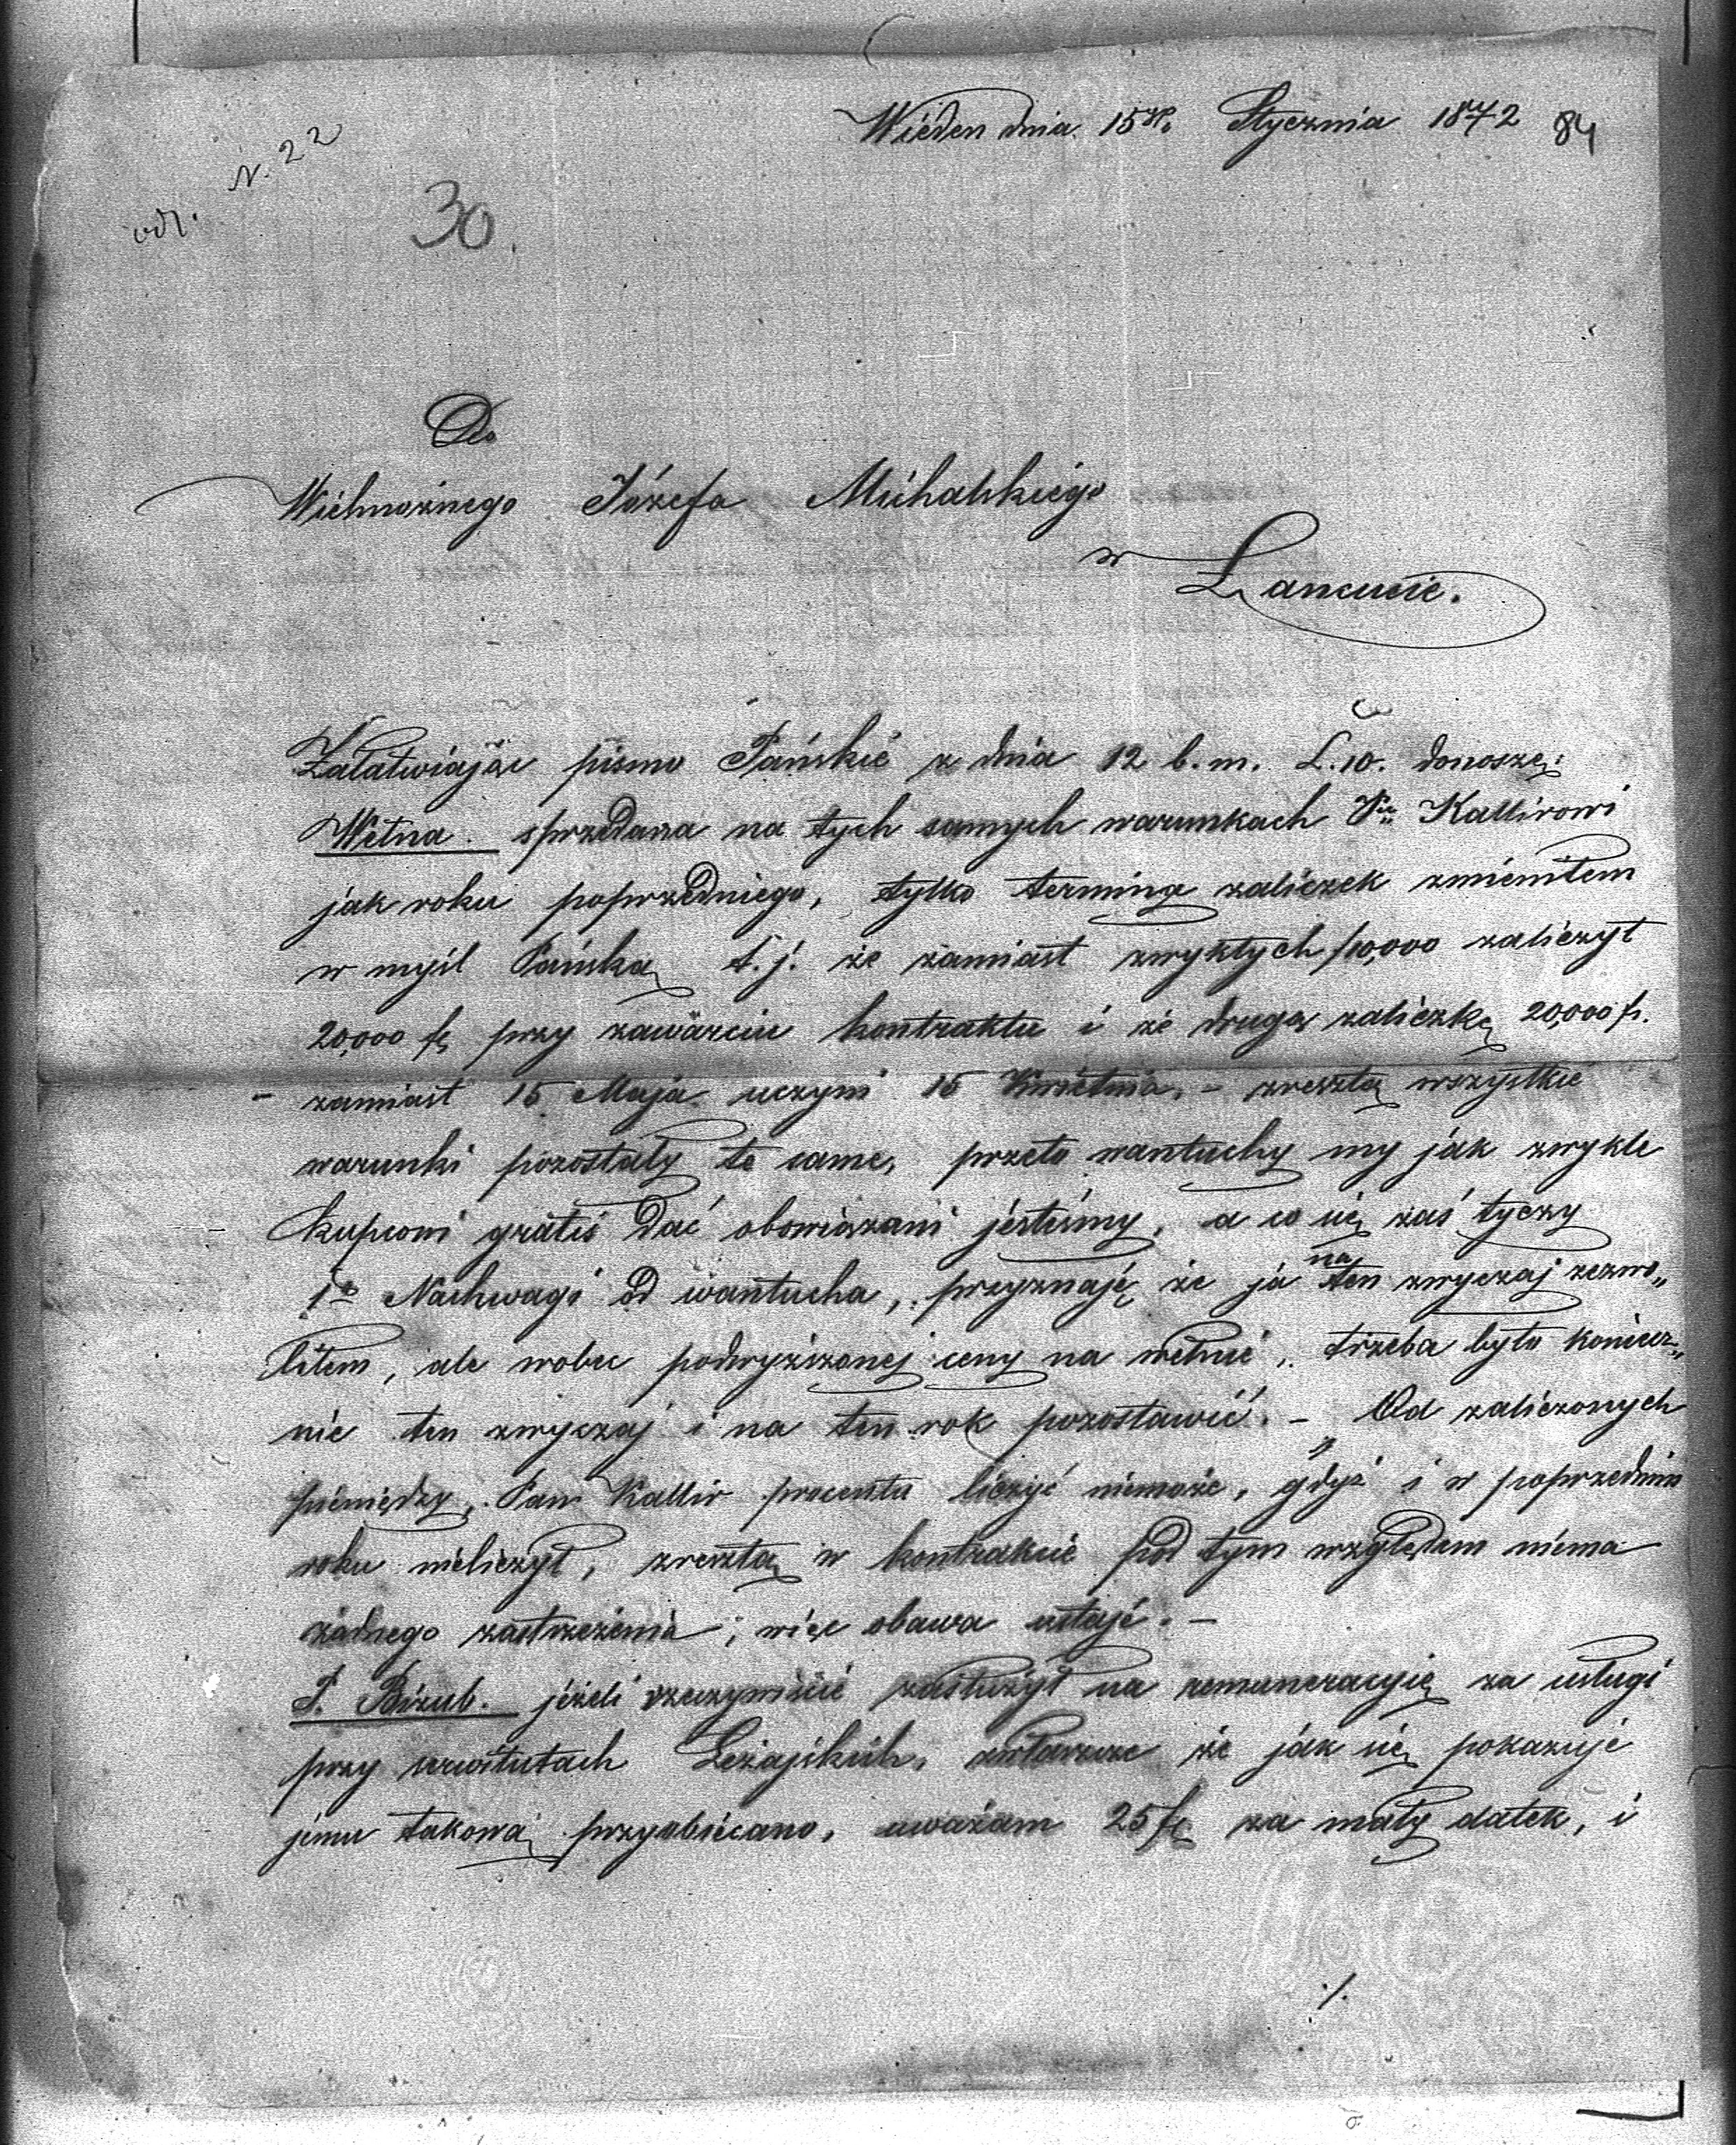 Wieden dnia 15go Stycznia 1872 84
N. 22
odp.
30.
Do
Wielmożnego Józefa Michalskiego
w
Łancucie.
Załatwiając pismo Pańskie z dnia 12 b.m. L.10. donoszę:
Wełna. sprzedana na tych samych warunkach Pu Kallirowi
jak roku poprzedniego, tylko terminy zaliczek zmieniłem
w myśl Pańską t.j. że zamiast zwykłych /10,000 zaliczył
20,000 fl przy zawarciu kontraktu i że drugą zaliczkę 20,000 fl.
- zamiast 15 Maja uczyni 15 Kwietnia. - zresztą wszystkie
warunki pozostały te same, przeto wantuchy my jak zwykle
kupcowi gratis dać obowiązani jesteśmy, a co się zaś tyczy
Nachwagi od wantucha, przyznaję że ja na ten zwyczaj zezwo„
liłem, ale wobec podwyższonej ceny na wełnie, trzeba było koniecz„
nie ten zwyczaj i na ten rok pozostawić. - Od zaliczonych
pieniędzy, Pan Kallir procentu liczyć niemoże, gdyż i w poprzednim
roku nieliczył, zresztą w kontrakcie pod tym względem niema
żadnego zastrzeżenia, więc obawa ustaje. -
P. Bizub. jeżeli rzeczywiście zasłużył na remuneracyię za usługi
przy serwitutach Leżajskich, zwłaszcza że jak się pokazuje
jemu takową przyobiecano, uważam 25 fl za mały datek, i
./.